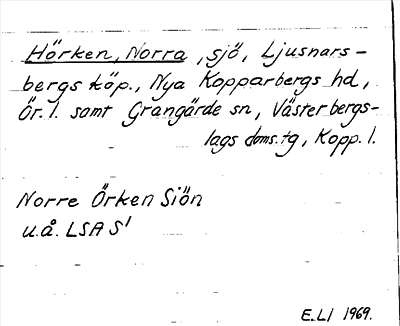 Hörken, Norra, sjö, Ljusnars-
bergs köp., Nya Kopparbergs hd,
Ör. l. samt Grangärde sn, Västerbergs-
lags doms.tg, Kopp. l.
Norre Örken Siön
u.å. LSA S1
E.LI 1969.